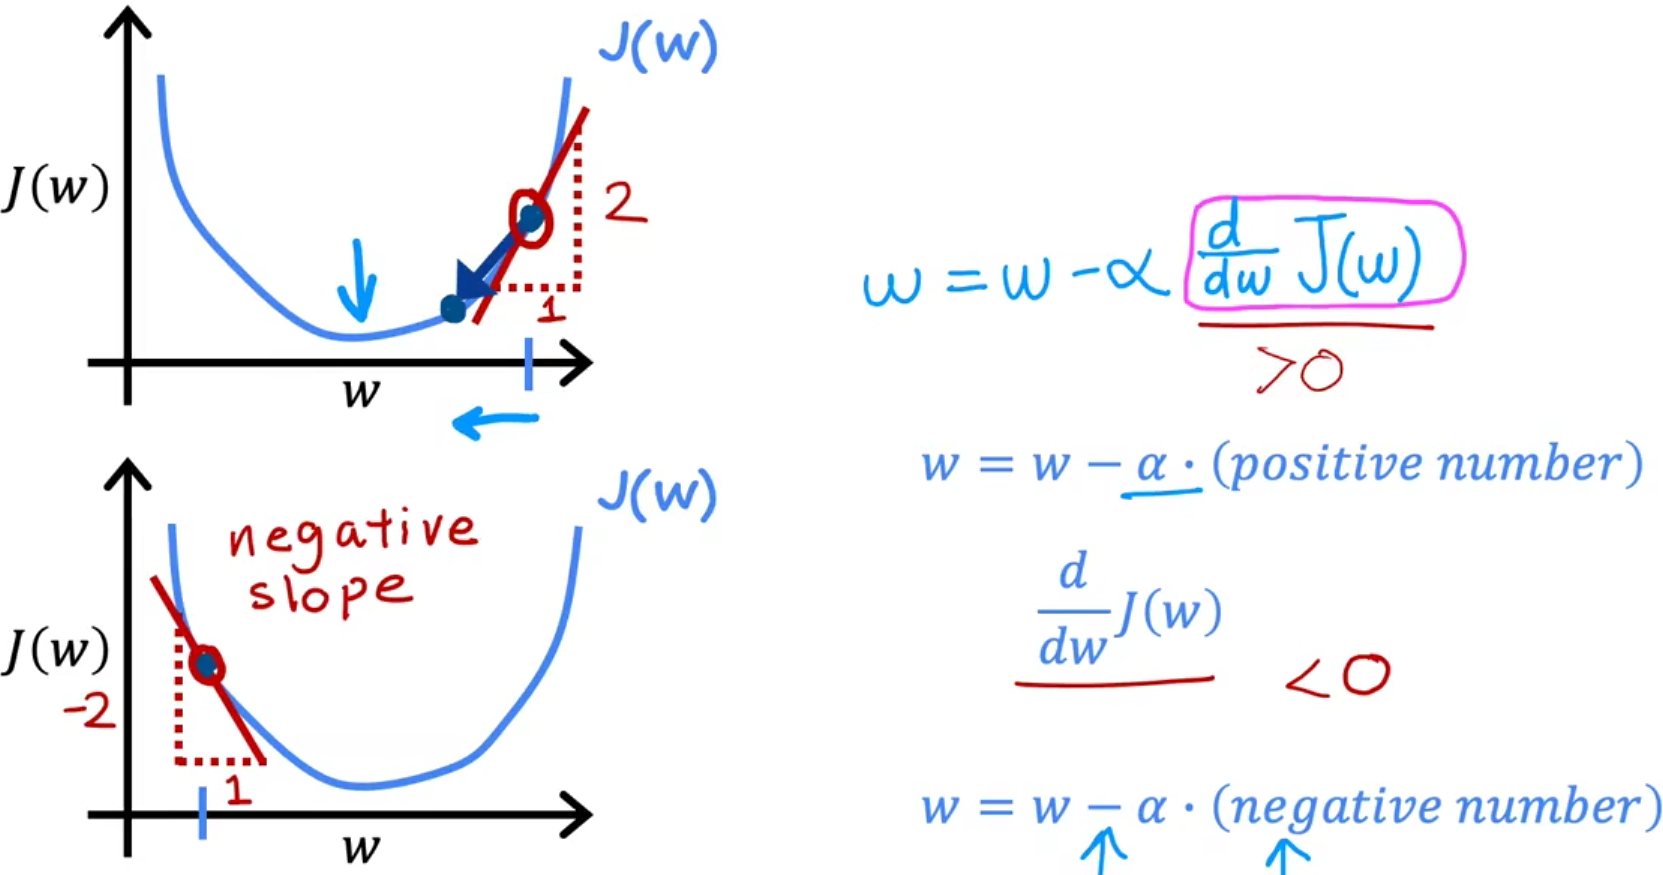 J(w)
J(w)
2
1
w
w = w - α d/dw J(w)
>0
w = w − α · (positive number)
J(w)
negative
slope
J(w)
-2
1
w
d/dw J(w)
<0
w = w − α · (negative number)